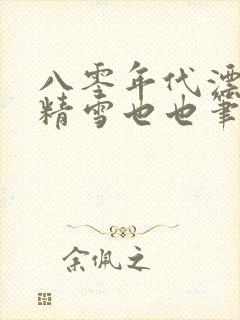 八零年代漂
精雪也也笔
余佩之